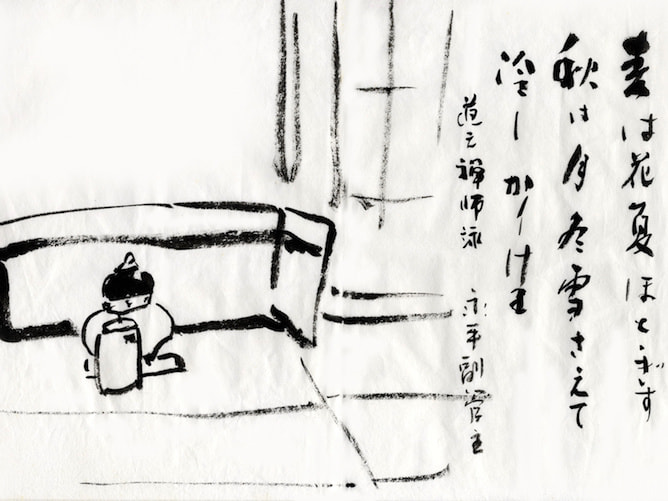 春は花夏ほとゝぎす
秋は月冬雪さえて
冷しかりけり
道元禅師詠 永平副主